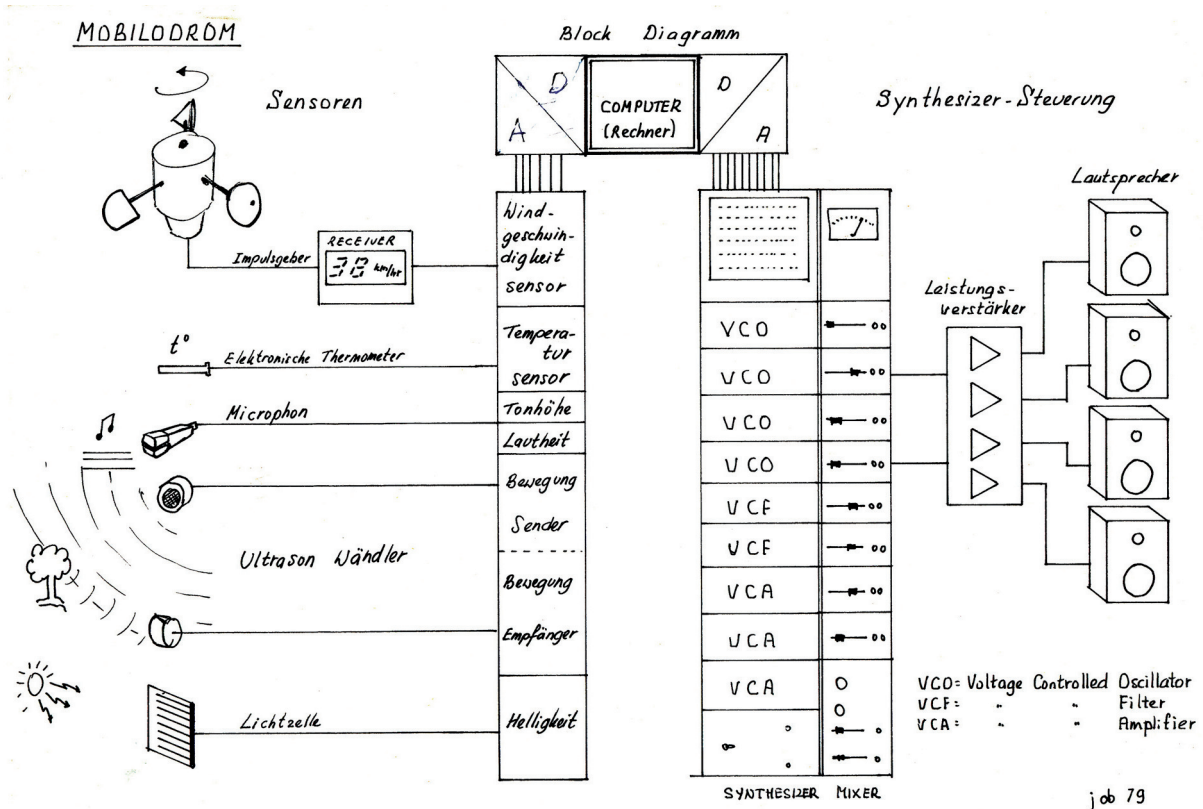 MOBILODROM
Block Diagramm
Sensoren
A
D
COMPUTER
(Rechner)
D
A
Synthesizer-Steuerung
Wind-
geschwin-
digkeit
sensor
Impulsgeber
RECEIVER
38 km/hr
Tempera-
tur
sensor
t°
Elektronische Thermometer
Microphon
Tonhöhe
Lautheit
Bewegung
Sender
Ultrason Wändler
Bewegung
Empfänger
Lichtzelle
Helligkeit
VCO
VCO
VCO
VCO
VCF
VCF
VCA
VCA
VCA
SYNTHESIZER MIXER
Leistungs-
verstärker
Lautsprecher
VCO= Voltage Controlled Oscillator
VCF= " " Filter
VCA= " " Amplifier
job 79